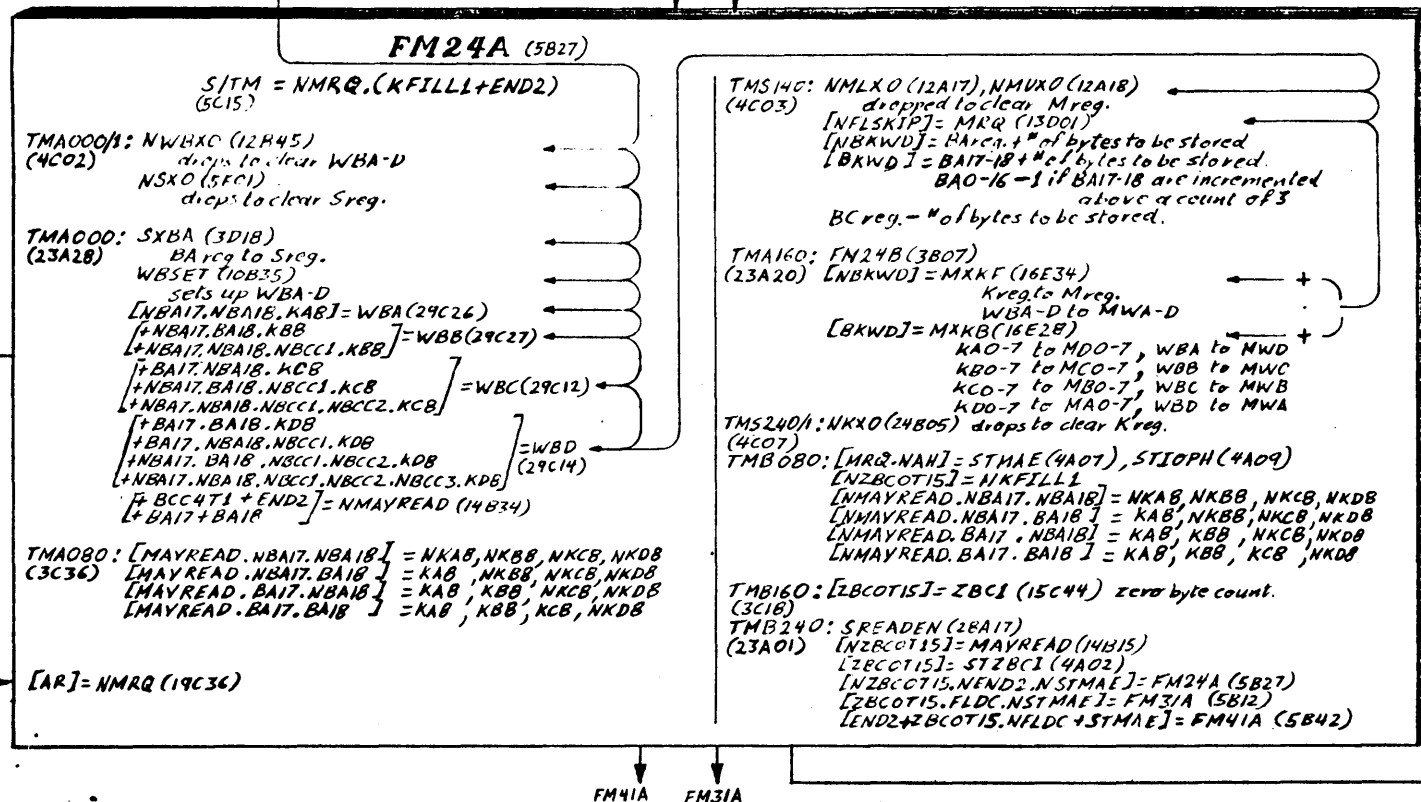 FM24A (5B27)
S/TM = NMRQ.(KFILL1+END2)
(5C15)
TMA000/1: NWBXO (12B45)
(4C02) drops to clear WBA-D
NSXO (5F01)
drops to clear Sreg.
TMA000: SXBA (3D18)
(23A28) BA reg to Sreg.
WBSET (10B35)
sets up WBA-D
[NBA17.NBA18.KAB]=WBA(29C26)
[+NBA17.BA18.KBB
[+NBA17.NBA18.NBCC1.KBB]=WBB(29C27)
[+BA17.NBA18.KCB
+NBA17.BA18.NBCC1.KCB =WBC(29C12)
+NBA7.NBA18.NBCC1.NBCC2.KCB]
[+BA17.BA18.KDB
+BA17.NBA18.NBCC1.KDB =WBD
+NBA17.BA18.NBCC1.NBCC2.KDB (29C14)
+NBA17.NBA18.NBCC1.NBCC2.NBCC3.KDB]
[+BCC4T1+END2
+BA17+BA18]=NMAYREAD (14B34)
TMA080: [MAYREAD.NBA17.NBA18] = NKAB,NKBB,NKCB,NKDB
(3C36) [MAYREAD.NBA17.BA18] = KAB,NKBB,NKCB,NKDB
[MAYREAD.BA17.NBA18] = KAB, KBB, NKCB,NKDB
[MAYREAD.BA17.BA18 ] = KAB, KBB, KCB, NKDB
[AR]=NMRQ(19C36)
TMS140: NMLXO(12A17),NMUXO(12A18)
(4C03) dropped to clear Mreg.
[NFLSKIP]= MRQ (13D01)
[NBKWD]=BAreg.+ # of bytes to be stored
[BKWD]=BA17-18+# of bytes to be stored.
BA0-16 -1 if BA17-18 are incremented
above a count of 3
BC reg.- # of bytes to be stored.
TMA160: FM24B(3B07)
(23A20) [NBKWD]=MXKF(16E34) +
Kreg to Mreg.
WBA-D to MWA-D
[BKWD]=MXKB(16E28) +
KA0-7 to MD0-7, WBA to MWD
KB0-7 to MC0-7, WBB to MWC
KC0-7 to MB0-7, WBC to MWB
KD0-7 to MA0-7, WBD to MWA
TMS240/1: NKXO(24B05) drops to clear Kreg.
(4C07)
TMB080: [MRQ.NAH]=STMAE(4A07),STIOPH(4A09)
[NZBCOT15]=NKFILL1
[NMAYREAD.NBA17.NBA18]= NKAB,NKBB,NKCB,NKDB
[NMAYREAD.NBA17.BA18 ] = KAB,NKBB,NKCB,NKDB
[NMAYREAD.BA17.NBA18] = KAB, KBB, NKCB,NKDB
[NMAYREAD.BA17.BA18 ] = KAB, KBB, KCB, NKDB
TMB160: [ZBCOT15]=ZBC1 (15C44) zero byte count.
(3C18)
TMB240: SREADEN(28A17)
(23A01) [NZBCOT15]=MAYREAD(14B15)
[ZBCOT15]=STZBCI(4A02)
[NZBCOT15.NEND2.NSTMAE]=FM24A (5B27)
[ZBCOT15.FLDC.NSTMAE]= FM31A (5B12)
[END2+ZBCOT15.NFLDC+STMAE]=FM41A (5B42)
FM41A FM31A